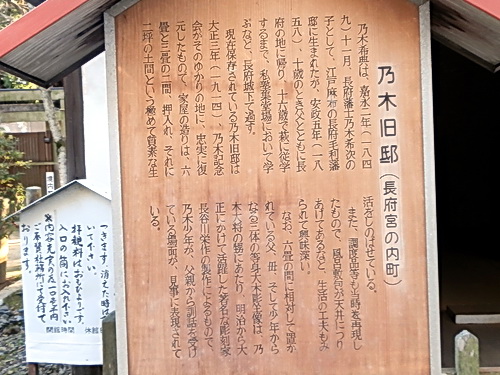 乃木旧邸(長府宮の内町)
乃木希典は、嘉永二年(一八四
九)十一月、長府藩士乃木希次の
子として、江戸麻布の長府毛利藩
邸に生まれたが、安政五年(一八
五八)、十歳のとき父とともに長
府の地に帰り、十六歳で萩に従学
するまで、私塾集童場において学
ぶなど、長府城下で過す。
現在保存されている乃木旧邸は
大正三年(一九一四)、乃木記念
会がそのゆかりの地に、忠実に復
元したもので、家屋の造りは、六
畳と三畳の二間、押入れ、それに
二坪の土間という極めて質素な生
活をしのばせている。
また、調度品等も当時を再現し
たもので、風呂敷包が天井につり
あげてあるなど、生活の工夫もみ
られて興味深い。
なお、六畳の間に相対して置か
れている父、母、そして少年から
なる三体の等身大木彫坐像は、乃
木大将の甥にあたり、明治から大
正にかけて活躍した著名な彫刻家
長谷川栄作の製作によるもので、
乃木少年が、父親から訓話を受け
ている場面が、見事に表現されて
いる。
つきます。消えた時は
いて下さい。
拝観料はおもひよりです。
入口の筒にお入れ下さい
※内容充実の為一口百円
ご奉賛社務所にて受付て
おります。
開館時間
休館